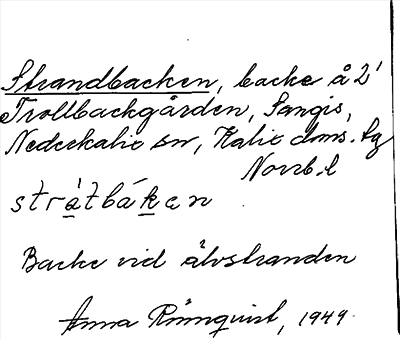 Strandbacken, backe å 2¹
Trollbackgården, Sangis,
Nederkalix sn, Kalix doms. tg
Norrb. l
stràtbákan
Backe vid älvstranden
Anna Rönnquist, 1949.